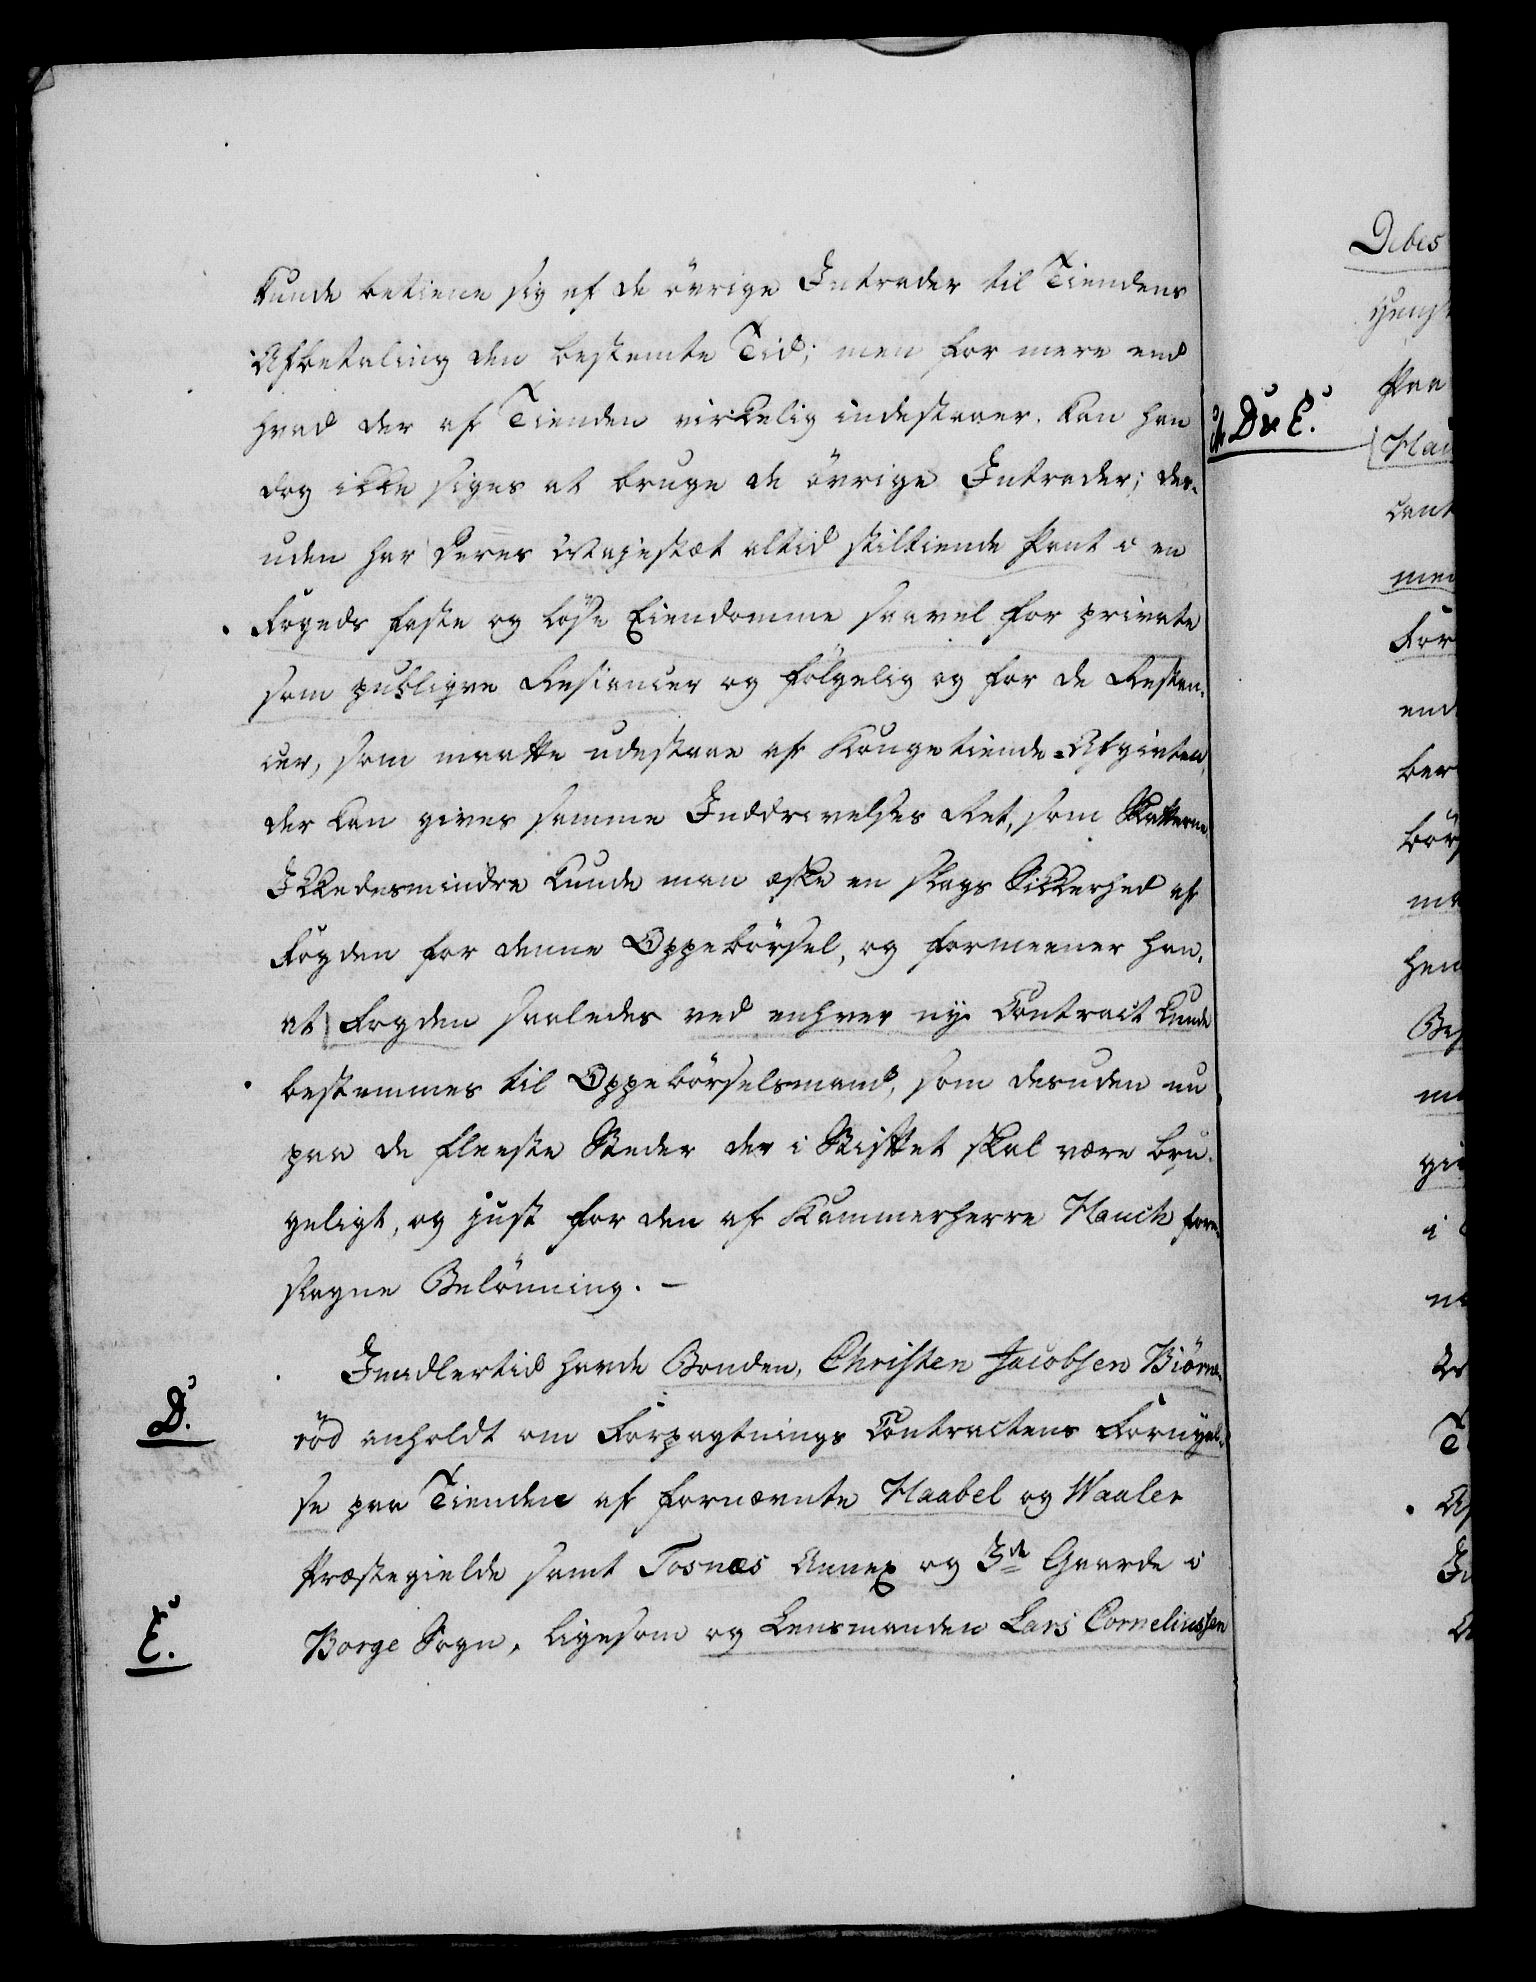 kunde betiene sig af de övrige Intrader til Tiendens
Afbetaling den bestemte Tid; men for mere end
hvad der af Tienden virkelig indestaaer, kan han
dog ikke siges at bruge de övrige Intrader; des-
uden har Deres Majestæt altid stiltiende Pant i en
Fogeds faste og løse Eiendomme saavel for private
som publiqve Restancer og fölgelig og for de Restan-
cer, som maatte udestaae af Kongetiende-Afgivten,
der kan gives samme Inddrivelses Ret, som Skatterne.
Ikkedesmindre kunde man æske en slags Sikkerhed af
Fogden for denne Oppebörsel, og formeener han,
at Fogden saaledes ved enhver nye Contract kunde
bestemmes til Oppebörselsmand, som desuden nu
paa de fleeste Steder der i Stiftet skal være bru-
geligt, og just for den af Kammerherre Hauch fore-
slagne Belönning. –
Imidlertid havde Bonden, Christen Jacobsen Biörne-
D.
röd anholdt om Forpagtnings Contractens Fornyel-
se paa Tienden af fornævnte Haabel og Waaler
Præstegielde samt Tosnæs Annex og 3de Gaarde i
E.
Borge Sogn, ligesom og Lensmanden Lars Corneliussen
Debes
D & E.
Paa
Hau